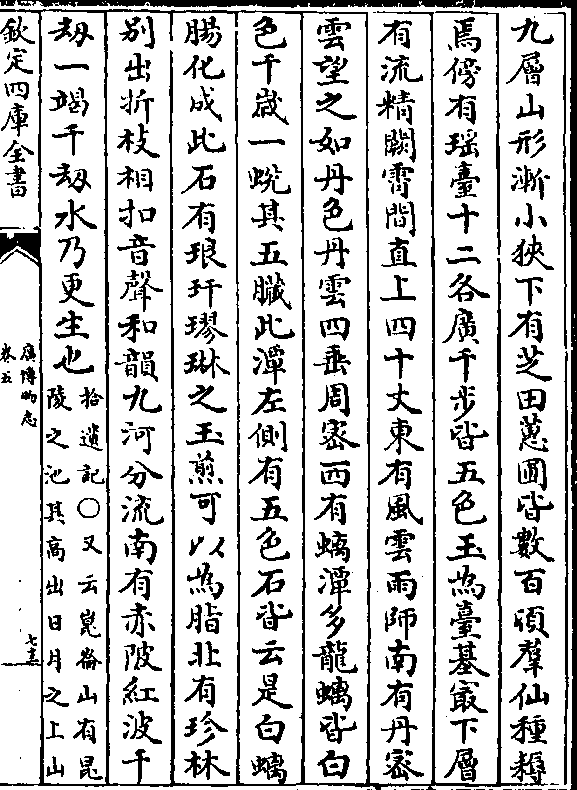 九層山形漸小狹下有芝田蕙圃皆數百頃羣仙種耨
焉傍有瑶臺十二各廣千步皆五色玉為臺基最下層
有流精闕霄間直上四十丈東有風雲雨師南有丹密
雲望之如丹色丹雲四垂周宻西有螭潭多龍螭皆白
色千歲一蛻其五臟此潭左側有五色石皆云是白螭
腸化成此石有琅玕璆琳之玉煎可以為脂北有珍林
别出折枝相扣音聲和韻九河分流南有赤陂紅波千
刼一竭千刼水乃更生也拾遺記○又云崑崙山有昆
陵之池其髙出日月之上山
欽定四庫全書
廣博物志
卷五
七十三